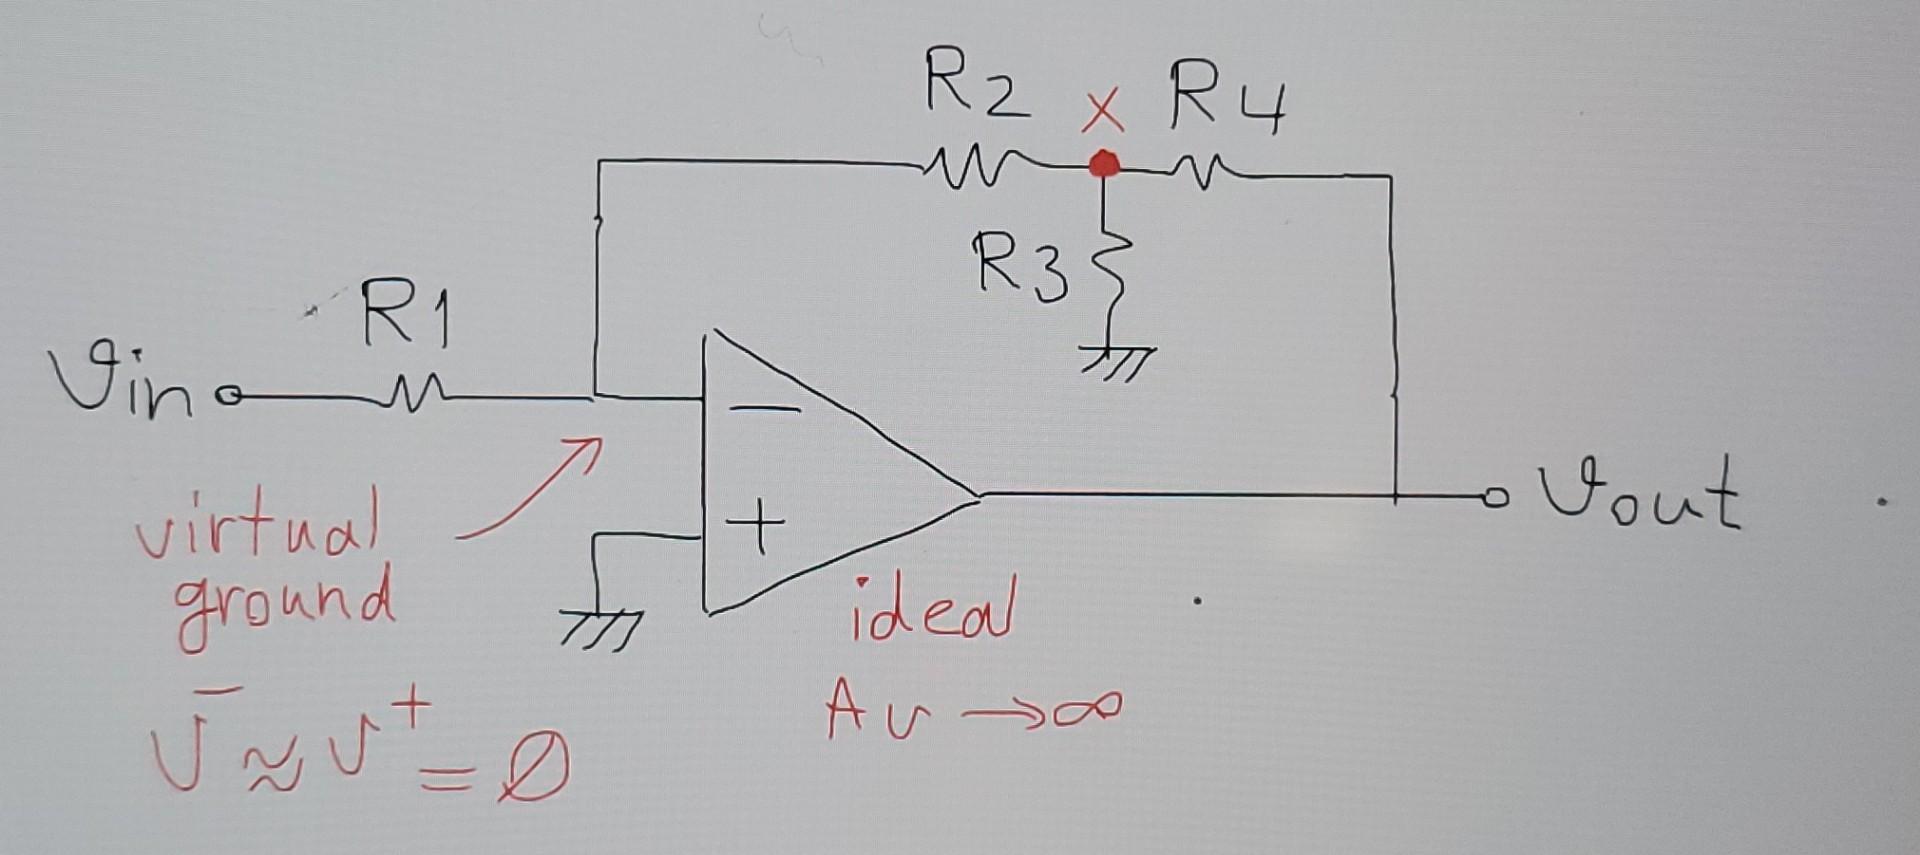 R2 x R4
R3
R1
Vin
-
+
Vout
virtual
ground
ideal
V⁻ ≈ V⁺ = Ø
Av → ∞